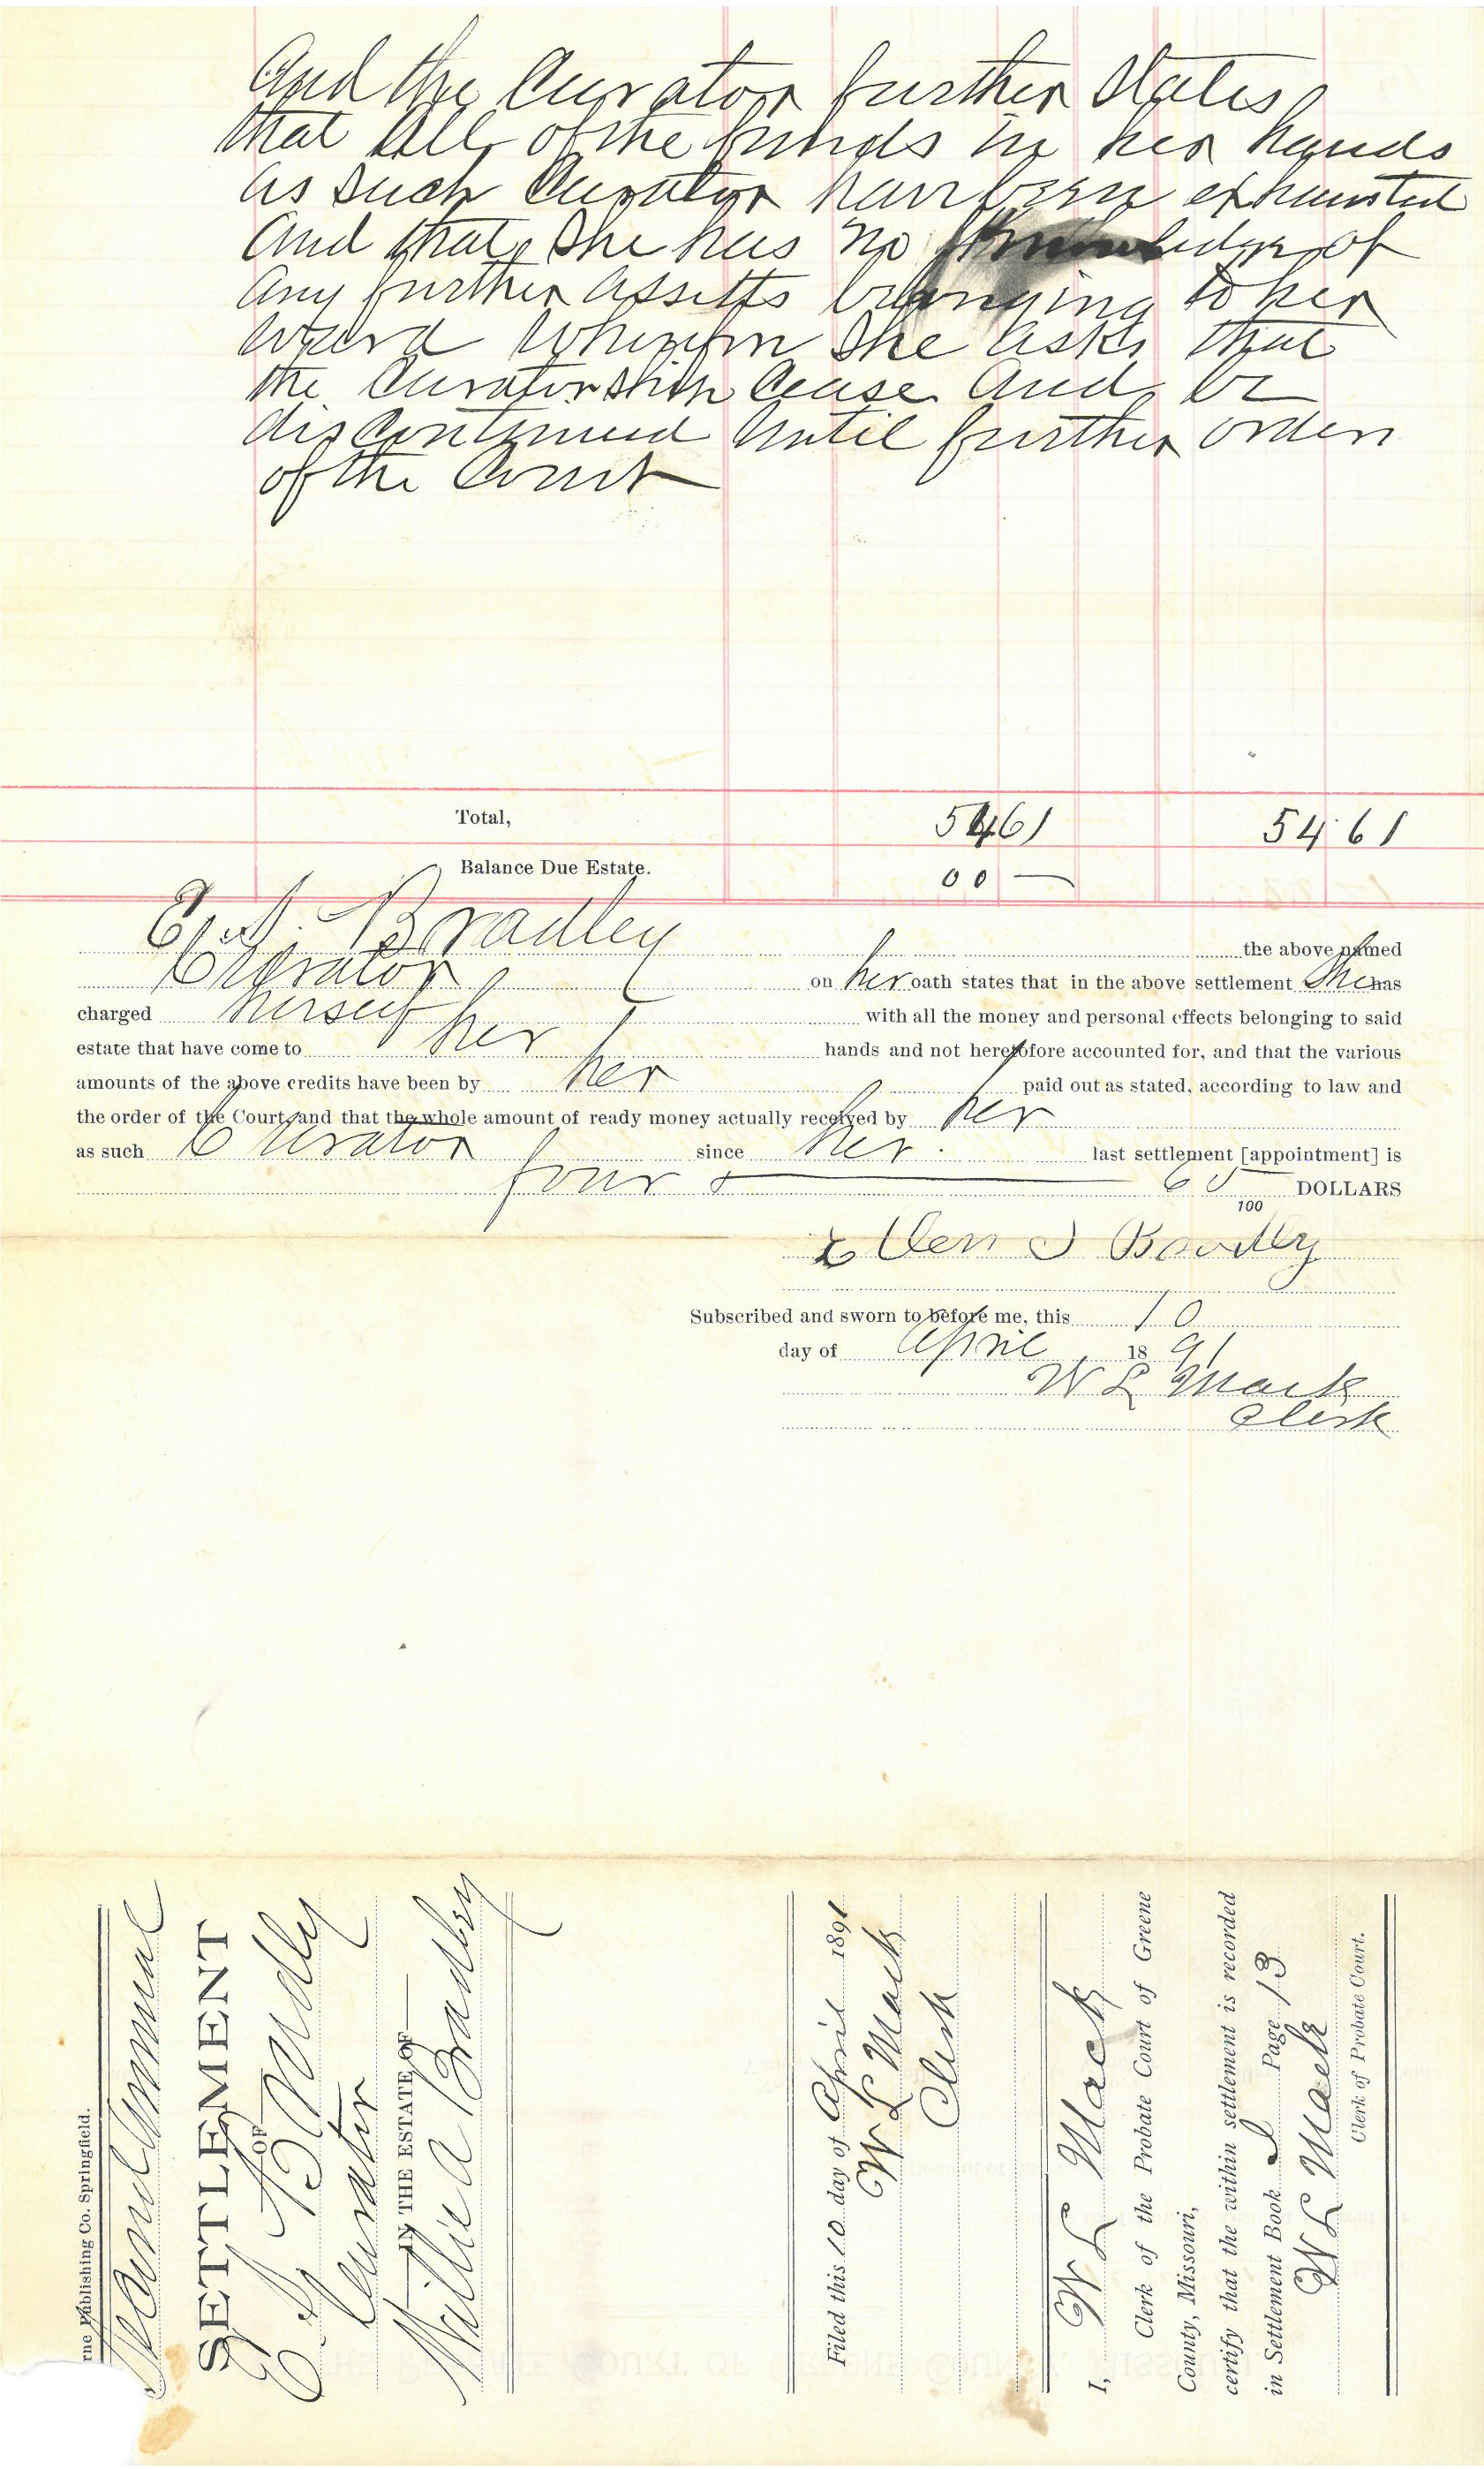 And the Curator further States
that all of the funds in her hands
as such Curator have been exhausted
And that She has no knowledge of
any further assetts belonging to her
ward Wherefore She asks that
the Curatorship Cease And be
discontinued Until further order
of the Court
Total, 5461 5461
Balance Due Estate. 00 —
E. S. Bradley the above named
Curator on her oath states that in the above settlement She has
charged herself with all the money and personal effects belonging to said
estate that have come to her hands and not heretofore accounted for, and that the various
amounts of the above credits have been by her paid out as stated, according to law and
the order of the Court, and that the whole amount of ready money actually received by her
as such Curator since her last settlement [appointment] is
four & 65/100 DOLLARS
Ellen S Bradley
Subscribed and sworn to before me, this 10
day of April 1891
W L Mack
Clerk
rne Publishing Co. Springfield.
Second Annual
SETTLEMENT
OF
E S Bradley
Curator
IN THE ESTATE OF
Willie A Bradley
Filed this 10 day of April 1891
W L Mack
Clerk
I, W L Mack
Clerk of the Probate Court of Greene
County, Missouri,
certify that the within settlement is recorded
in Settlement Book I Page 13
W L Mack
Clerk of Probate Court.